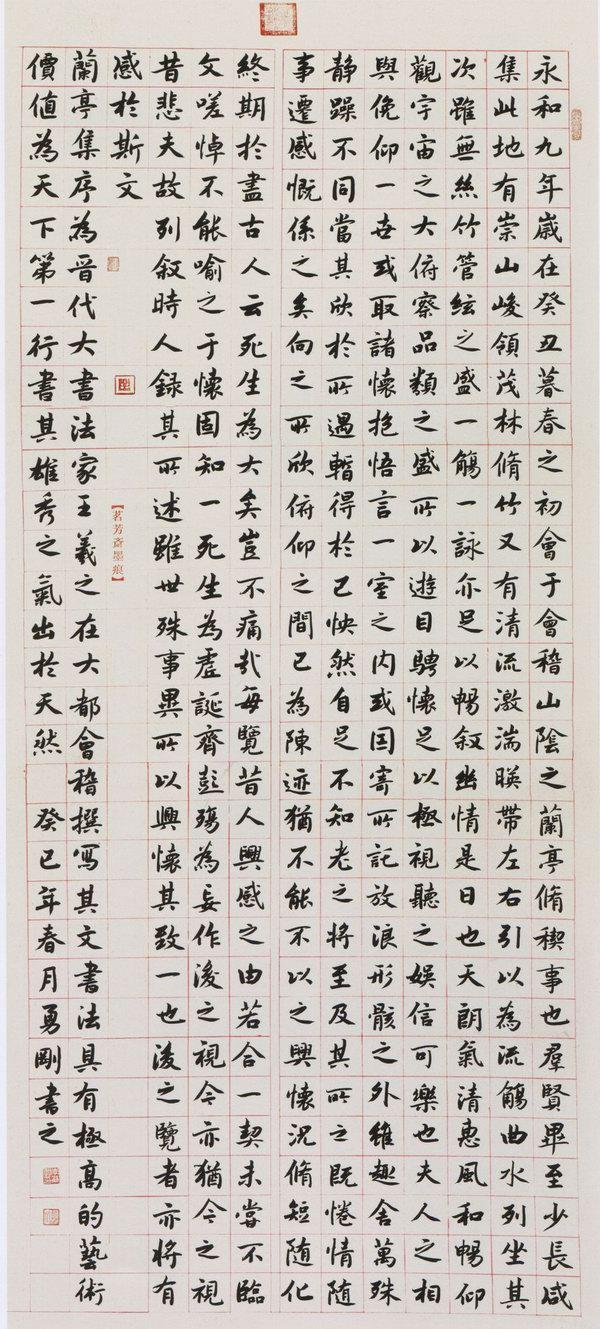 永和九年歲在癸丑暮春之初會于會稽山陰之蘭亭脩稧事也羣賢畢至少長咸
集此地有崇山峻領茂林脩竹又有清流激湍暎帶左右引以為流觴曲水列坐其
次雖無絲竹管絃之盛一觴一詠亦足以暢叙幽情是日也天朗氣清惠風和暢仰
觀宇宙之大俯察品類之盛所以遊目騁懷足以極視聽之娛信可樂也夫人之相
與俛仰一世或取諸懷抱悟言一室之内或因寄所託放浪形骸之外雖趣舍萬殊
静躁不同當其欣於所遇暫得於己怏然自足不知老之將至及其所之既惓情隨
事遷感慨係之矣向之所欣俯仰之間已為陳迹猶不能不以之興懷況脩短随化
終期於盡古人云死生為大矣豈不痛哉每覽昔人興感之由若合一契未嘗不臨
文嗟悼不能喻之于懷固知一死生為虚誕齊彭殤為妄作後之視今亦猶今之視
昔悲夫故列叙時人録其所述雖世殊事異所以興懷其致一也後之覽者亦將有
感於斯文
【茗芳斎墨痕】
蘭亭集序為晋代大書法家王羲之在大都會稽撰寫其文書法具有極高的藝術
價值為天下第一行書其雄秀之氣出於天然 癸巳年春月勇剛書之